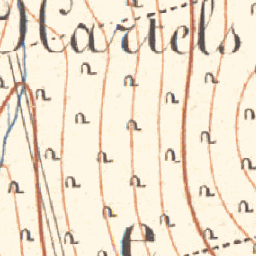 Hartels
e